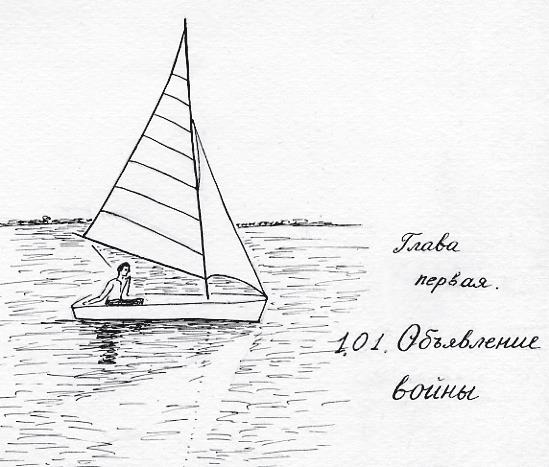 Глава
первая.
1.01. Объявление
войны